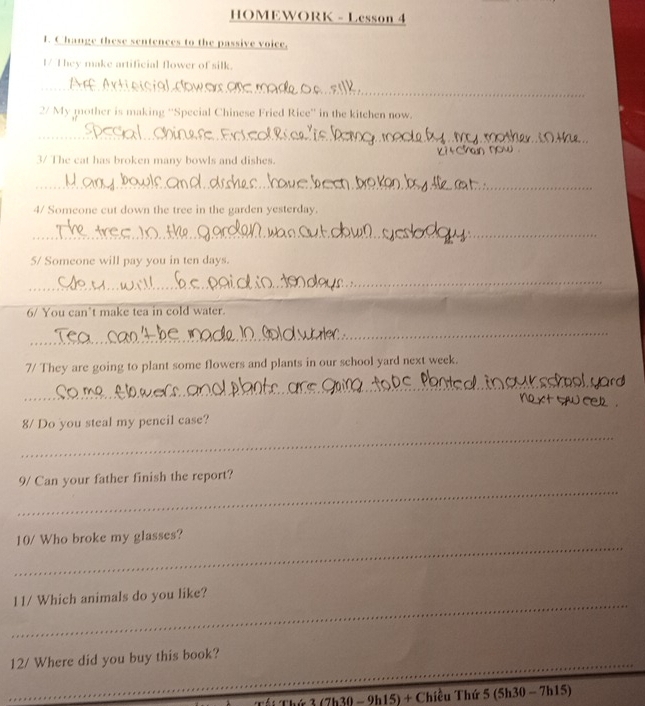 HOMEWORK - Lesson 4
I. Change these sentences to the passive voice.
1/ They make artificial flower of silk.
Artificial flowers are made of silk.
2/ My mother is making "Special Chinese Fried Rice" in the kitchen now.
Special Chinese Fried Rice" is being made by my mother in the
kitchen now.
3/ The cat has broken many bowls and dishes.
Many bowls and dishes have been broken by the cat.
4/ Someone cut down the tree in the garden yesterday.
The tree in the garden was cut down yestoday.
5/ Someone will pay you in ten days.
you will be paid in ten days.
6/ You can't make tea in cold water.
Tea can't be made in cold water.
7/ They are going to plant some flowers and plants in our school yard next week.
Some flowers and plants are going to be planted in our school yard
next week.
8/ Do you steal my pencil case?
9/ Can your father finish the report?
10/ Who broke my glasses?
11/ Which animals do you like?
12/ Where did you buy this book?
Thứ 3 (7h30 - 9h15) + Chiều Thứ 5 (5h30 - 7h15)